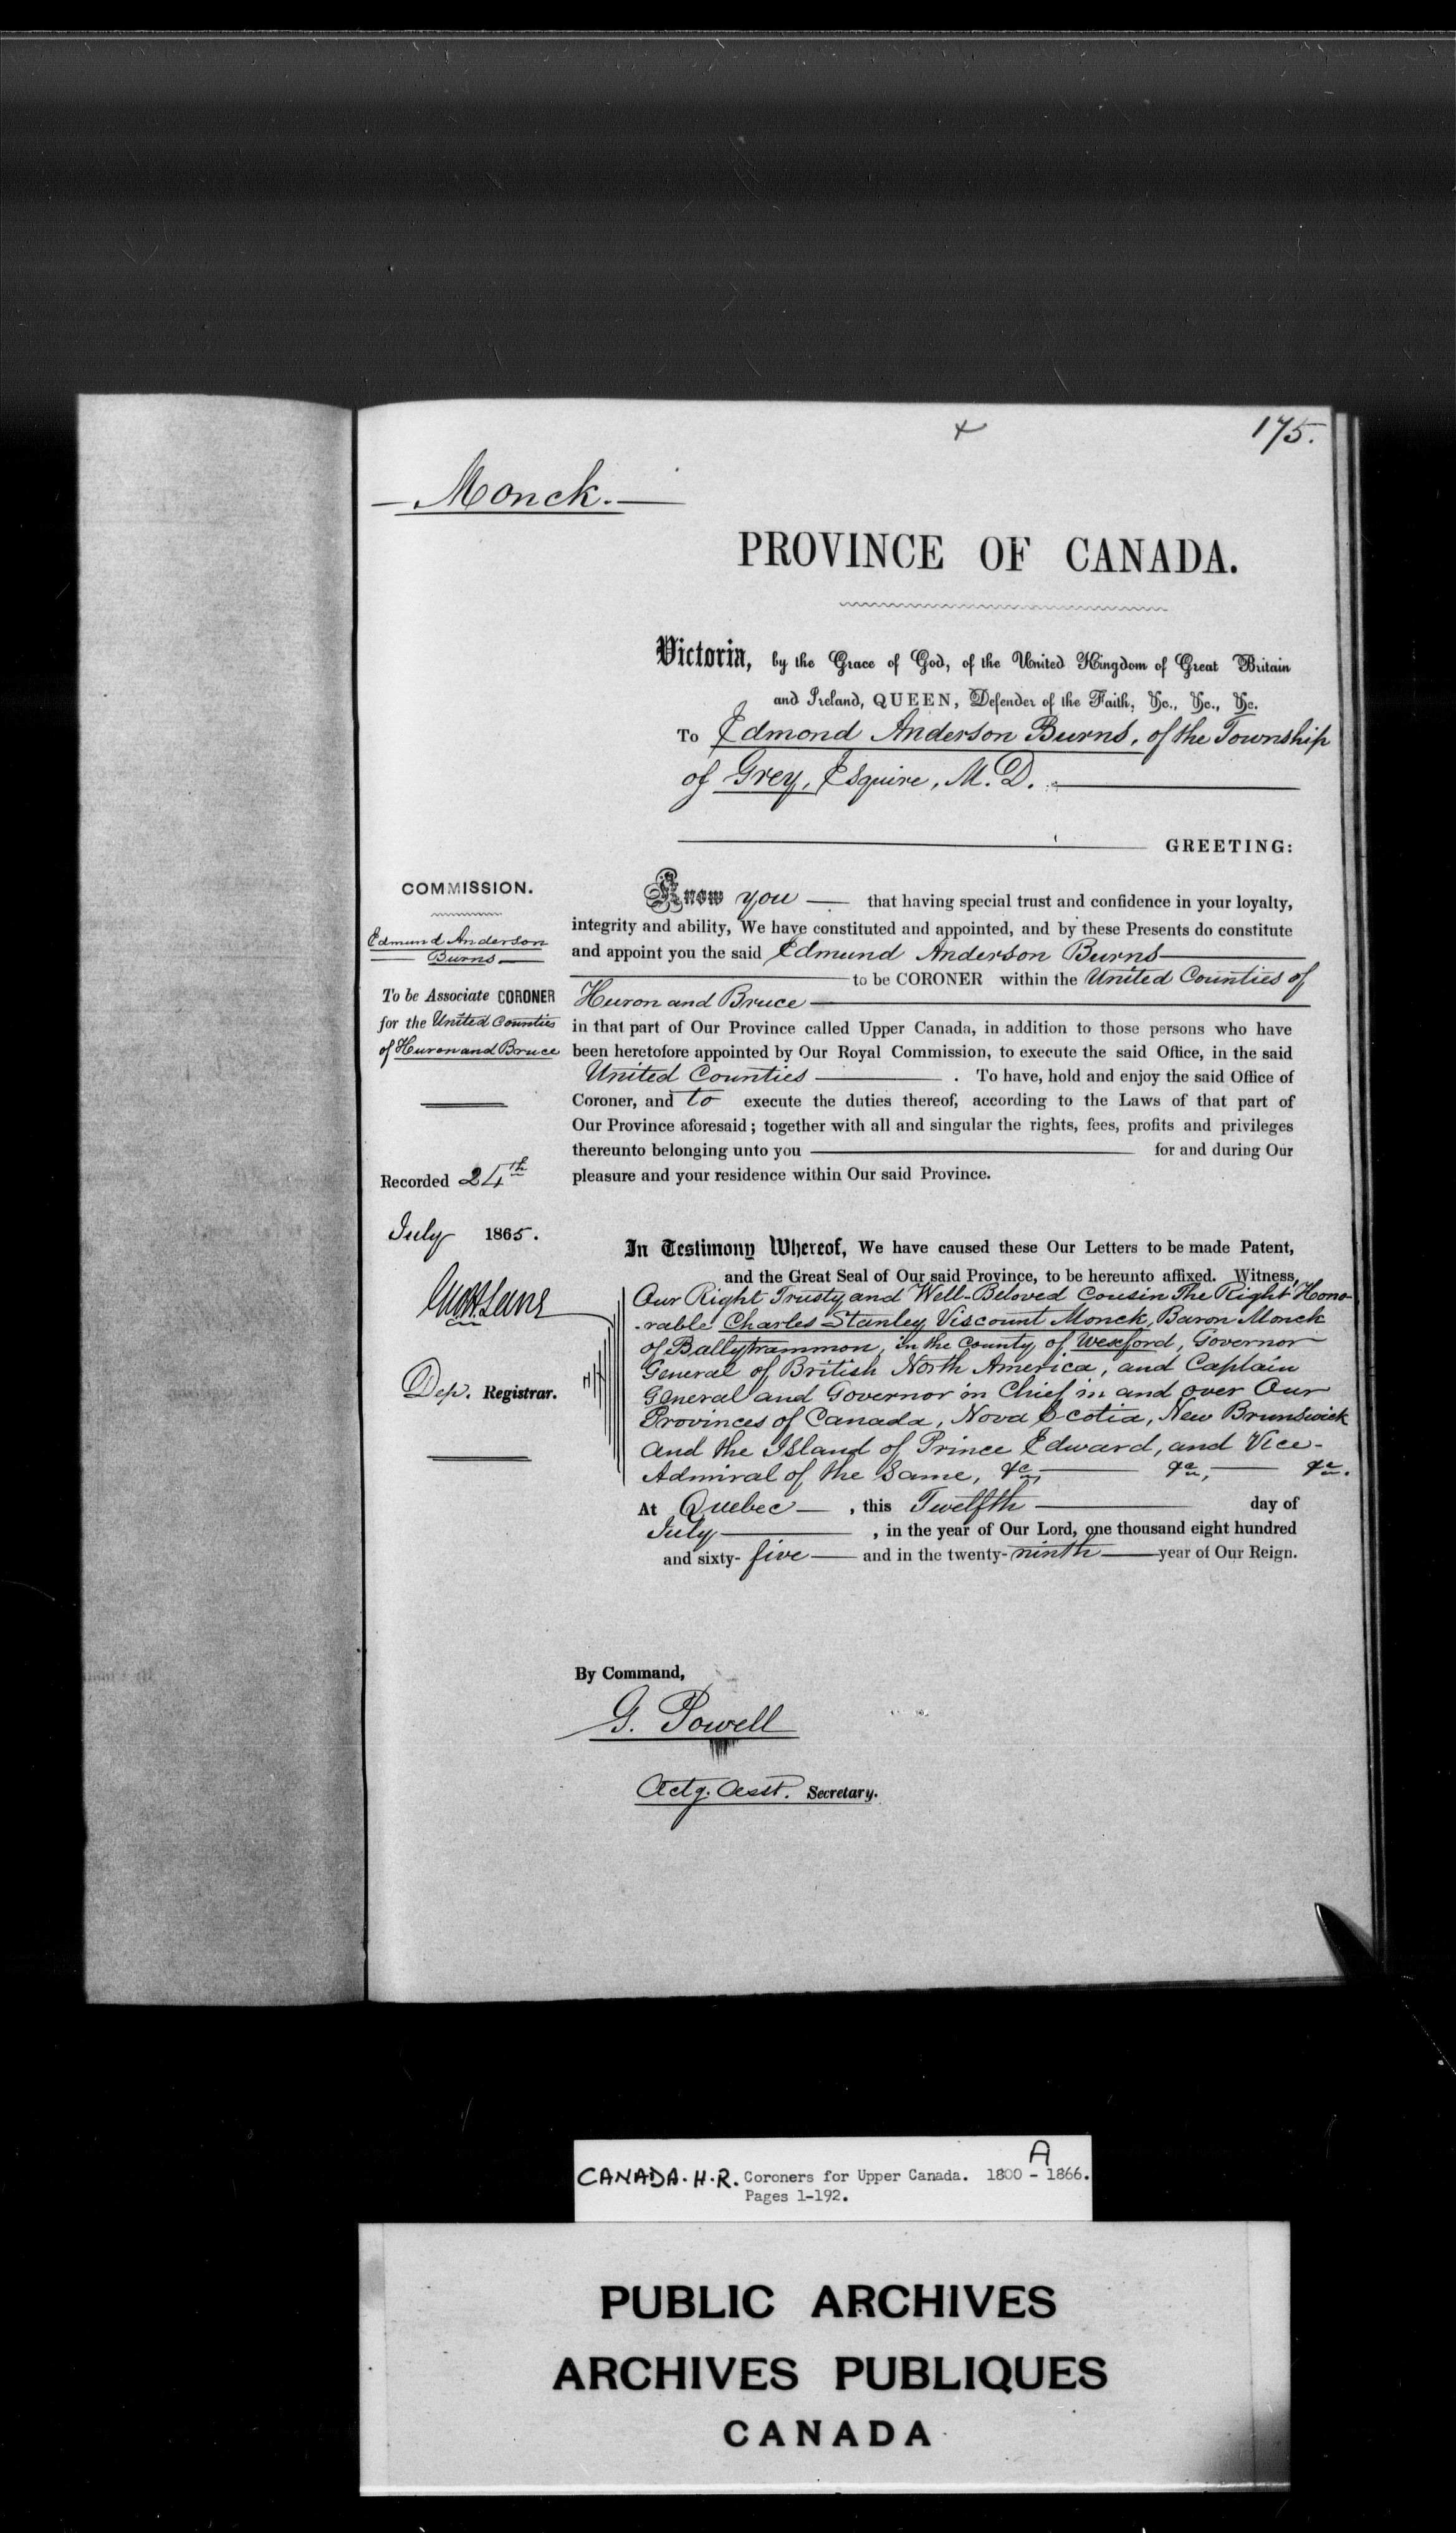 +
175.
Monck.
PROVINCE OF CANADA.
Victoria, by the Grace of God, of the United Kingdom of Great Britain
and Ireland, QUEEN, Defender of the Faith, &c., &c., &c.
To Edmond Anderson Burns, of the Township
of Grey, Esquire, M.D.
GREETING:
COMMISSION.
Edmund Anderson
Burns
To be Associate CORONER
for the United Counties
of Huron and Bruce
Recorded 24th
July 1865.
Dep. Registrar.
Know you that having special trust and confidence in your loyalty,
integrity and ability, We have constituted and appointed, and by these Presents do constitute
and appoint you the said Edmund Anderson Burns
to be CORONER within the United Counties of
Huron and Bruce
in that part of Our Province called Upper Canada, in addition to those persons who have
been heretofore appointed by Our Royal Commission, to execute the said Office, in the said
United Counties . To have, hold and enjoy the said Office of
Coroner, and to execute the duties thereof, according to the Laws of that part of
Our Province aforesaid; together with all and singular the rights, fees, profits and privileges
thereunto belonging unto you for and during Our
pleasure and your residence within Our said Province.
In Testimony Whereof, We have caused these Our Letters to be made Patent,
and the Great Seal of Our said Province, to be hereunto affixed. Witness,
Our Right Trusty and Well-Beloved Cousin The Right Hono-
-rable Charles Stanley Viscount Monck, Baron Monck
of Ballytrammon, in the County of Wexford, Governor
General of British North America, and Captain
General and Governor in Chief in and over Our
Provinces of Canada, Nova Scotia, New Brunswick
and the Island of Prince Edward, and Vice-
Admiral of the Same, &c, &c, &c.
At Quebec , this Twelfth day of
July , in the year of Our Lord, one thousand eight hundred
and sixty-five and in the twenty-ninth year of Our Reign.
By Command,
G. Powell
Actg. Asst. Secretary.
A
CANADA. H.R. Coroners for Upper Canada. 1800 - 1866.
Pages 1-192.
PUBLIC ARCHIVES
ARCHIVES PUBLIQUES
CANADA